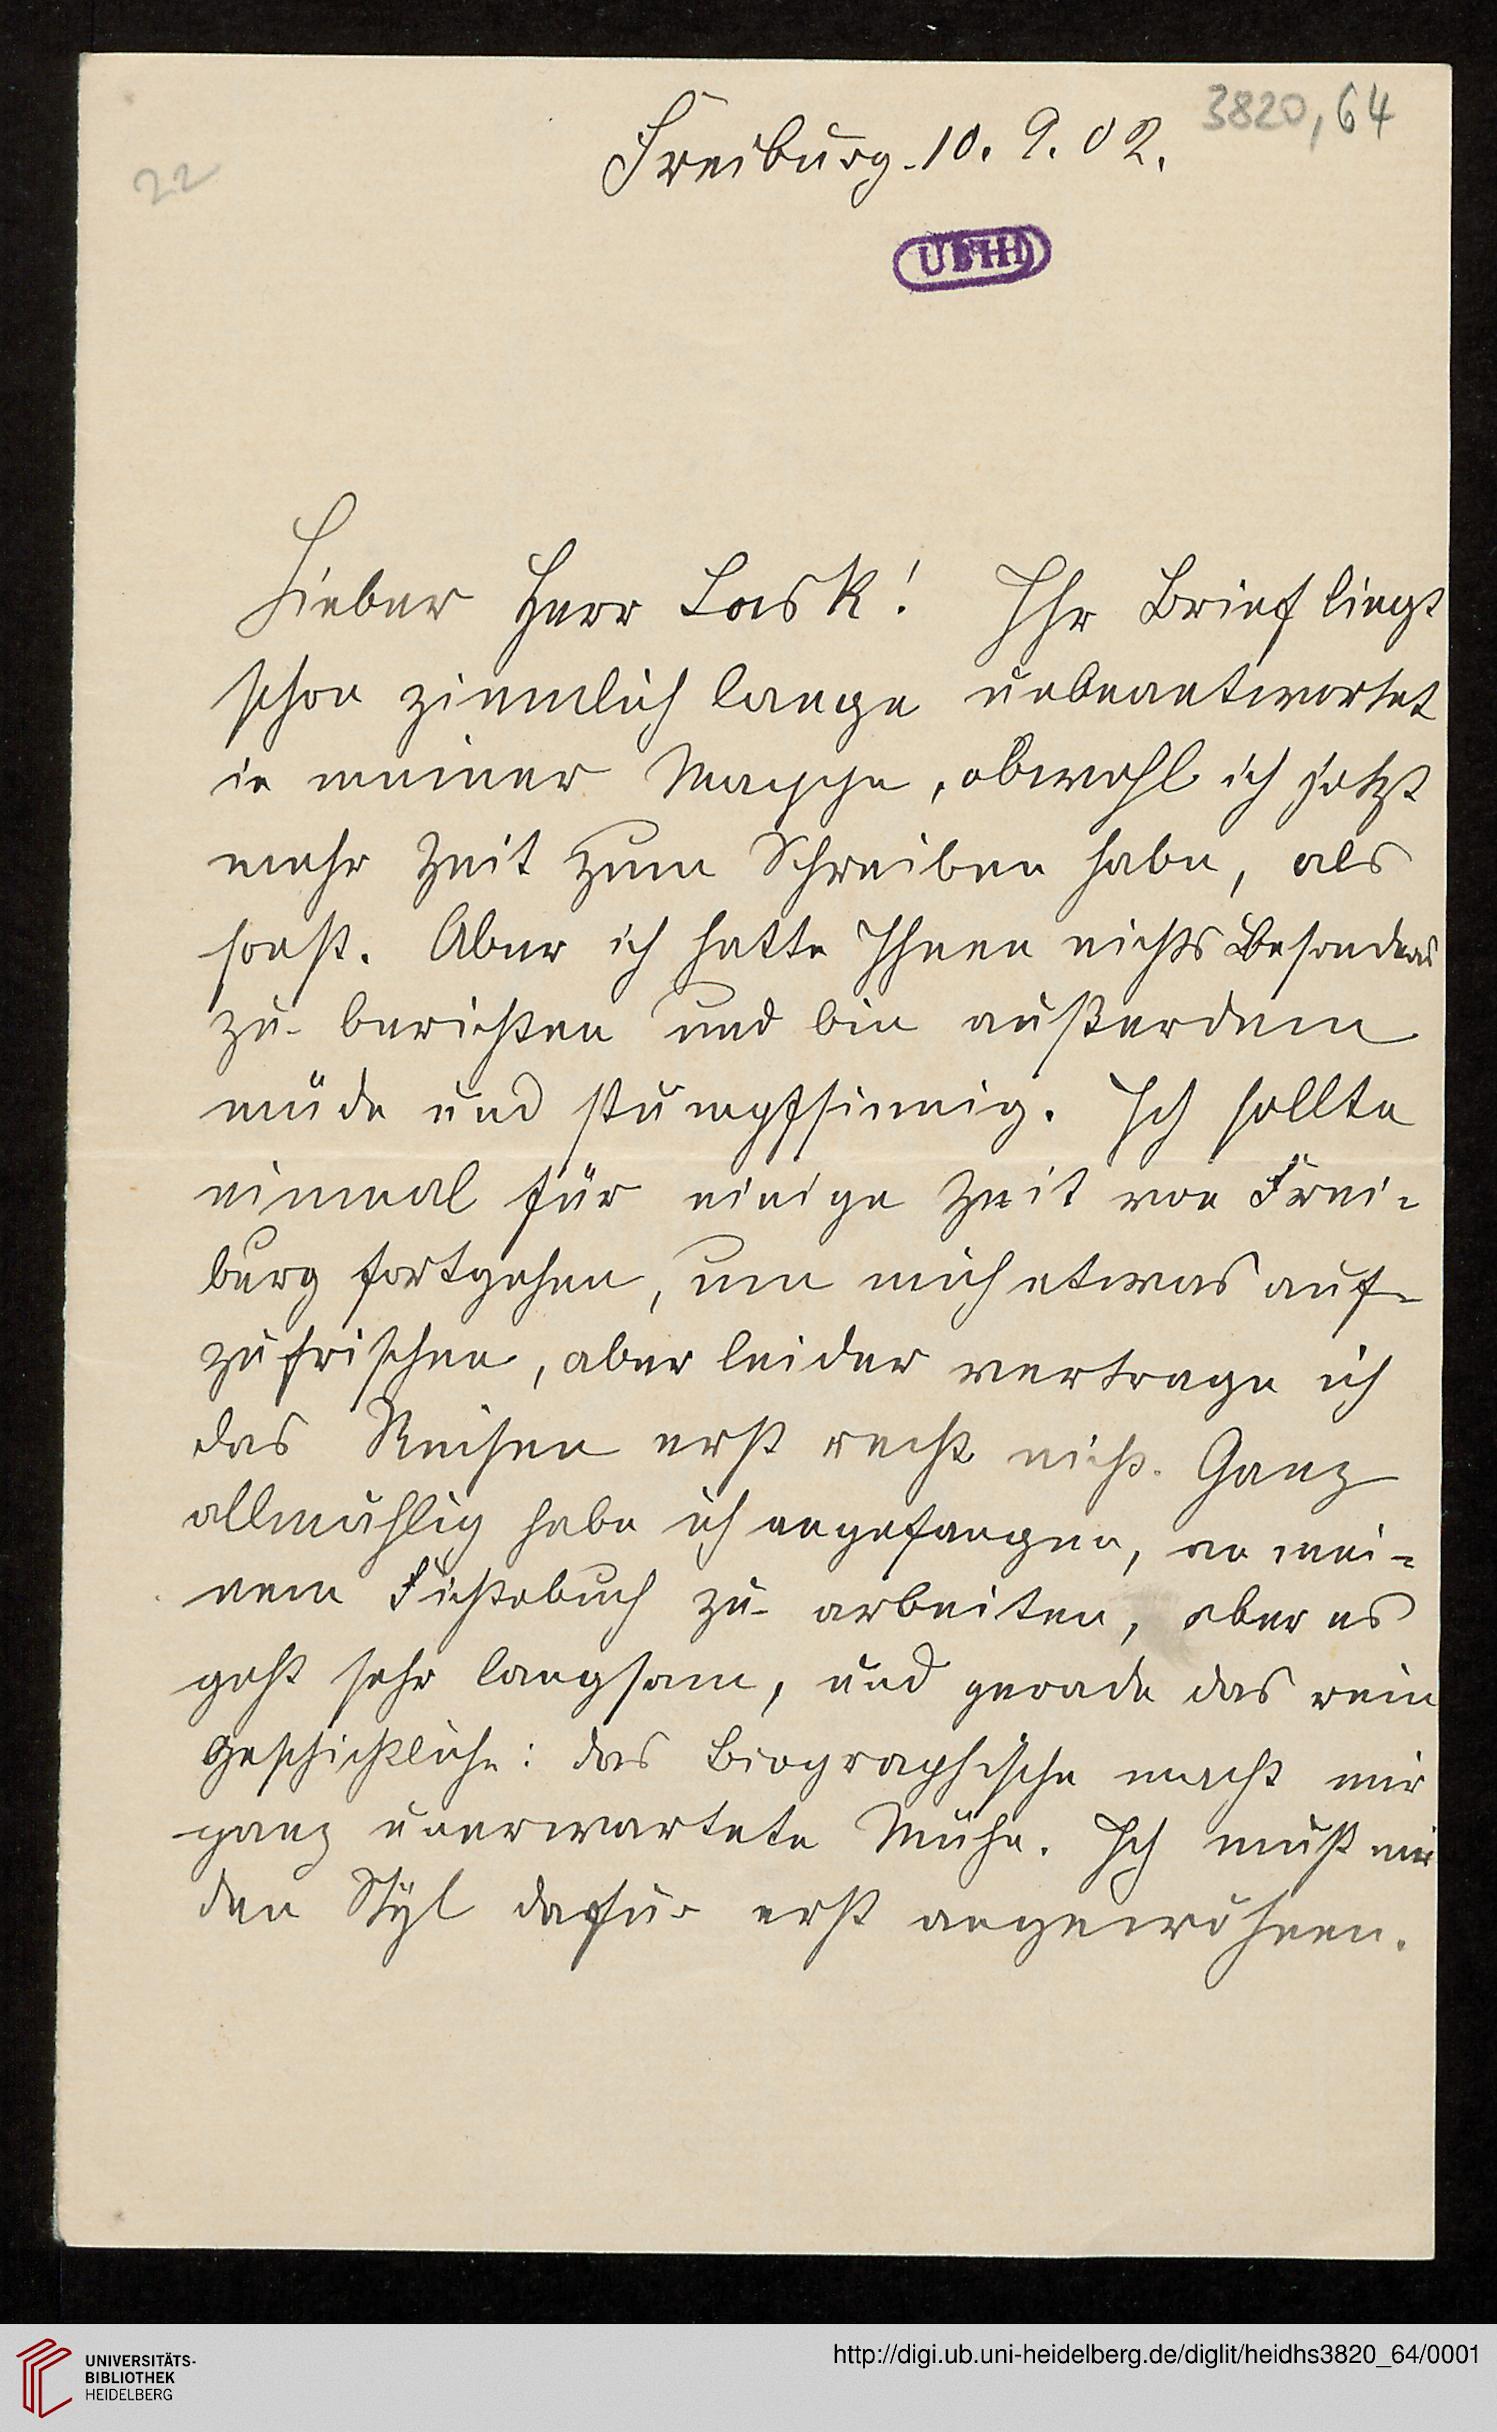 3820,64
Freiburg. 10. 9. 02.
22
UBHD
Lieber Herr Lask! Ihr Brief liegt
schon ziemlich lange unbeantwortet
in meiner Mappe, obwohl ich jetzt
mehr Zeit zum Schreiben habe, als
sonst. Aber ich hatte Ihnen nichts Besonderes
zu berichten und bin außerdem
müde und stumpfsinnig. Ich sollte
einmal für einige Zeit von Frei-
burg fortgehen, um mich etwas auf-
zufrischen, aber leider vertrage ich
das Reisen erst recht nicht. Ganz
allmählig habe ich angefangen, an mei-
nem Fichtebuch zu arbeiten, aber es
geht sehr langsam, und gerade das rein
Geschichtliche: das Biographische macht mir
ganz unerwartete Mühe. Ich muß mir
den Styl dafür erst angewöhnen.
UNIVERSITÄTS-
BIBLIOTHEK
HEIDELBERG
http://digi.ub.uni-heidelberg.de/diglit/heidhs3820_64/0001